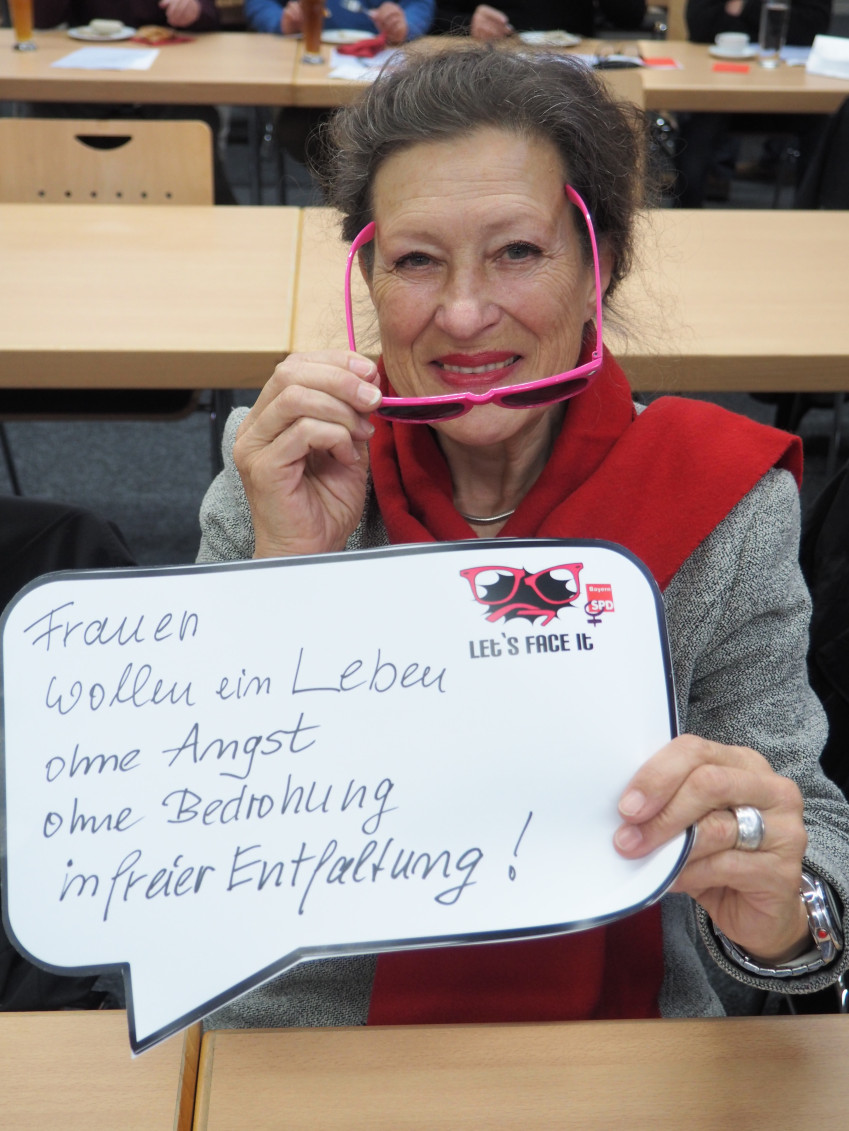 Frauen
wollen ein Leben
ohne Angst
ohne Bedrohung
in freier Entfaltung!
Bayern
SPD
LET'S FACE IT